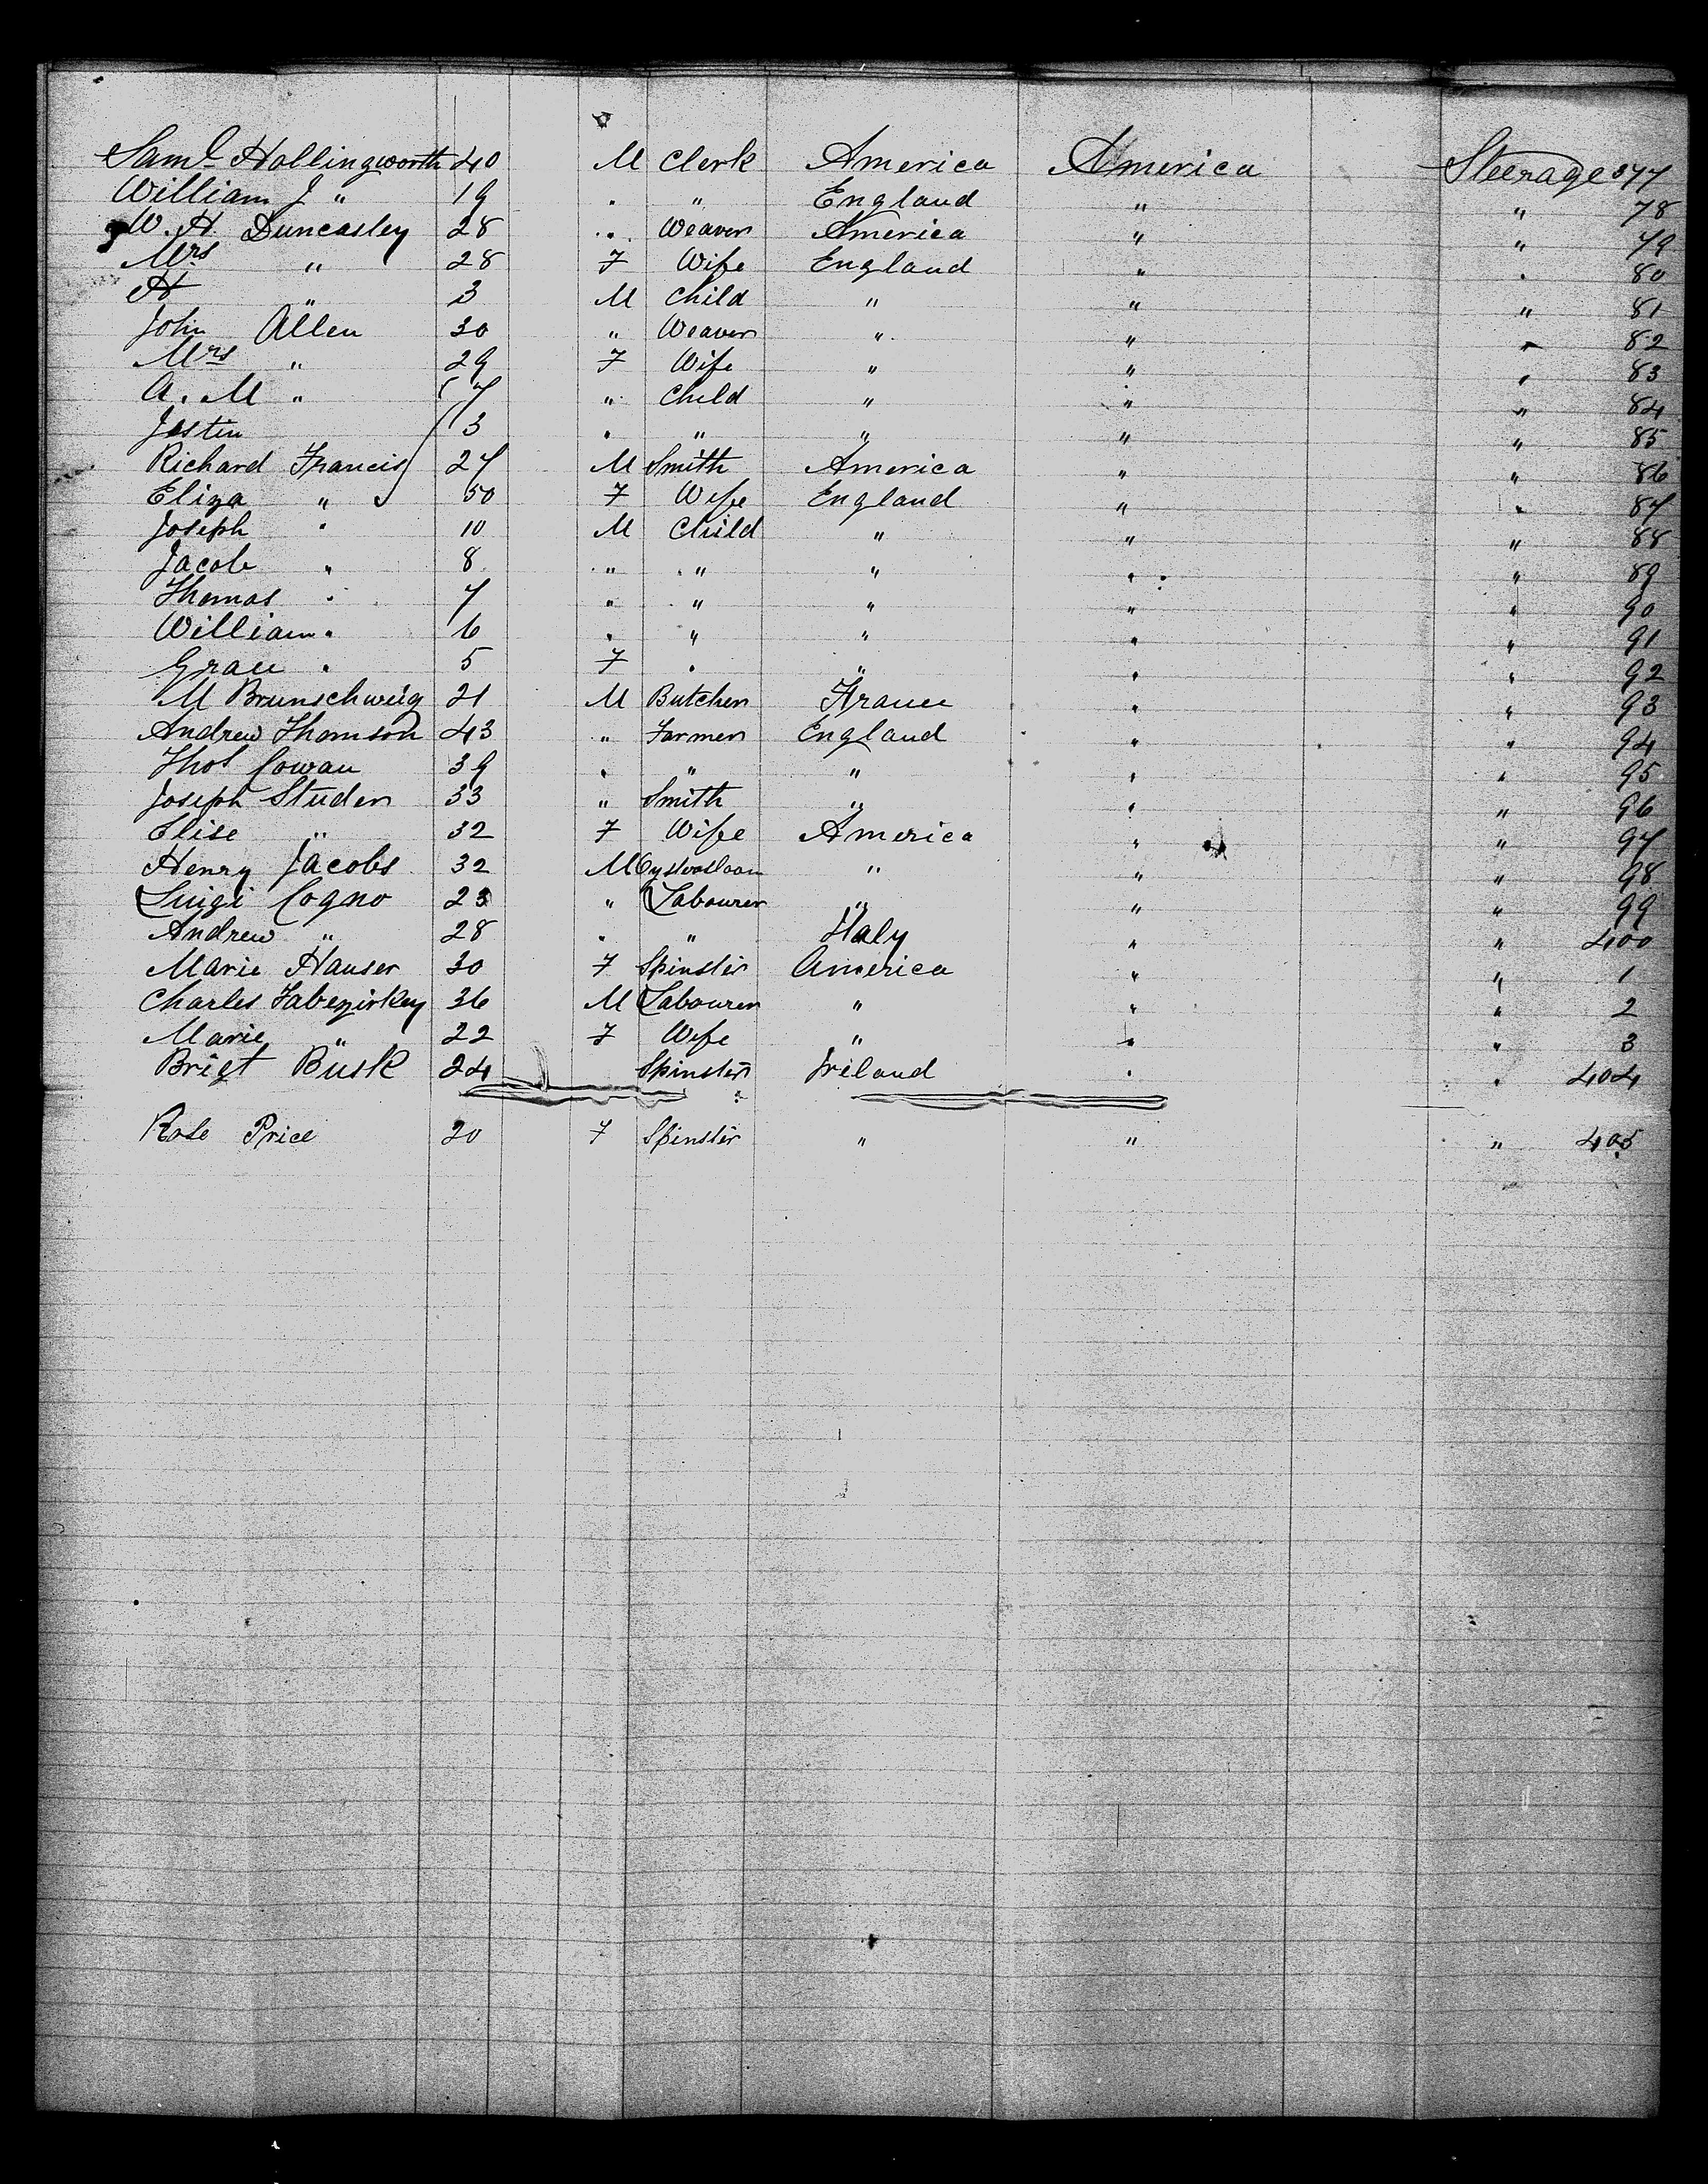 Saml Hollingworth 40 M Clerk America America Steerage 377
William J " 19 " " England " " 78
W. H. Duncasley 28 " Weaver America " " 79
Mrs " 28 F Wife England " " 80
H " 3 M Child " " " 81
John Allen 30 " Weaver " " " 82
Mrs " 29 F Wife " " " 83
A. M " 7 " Child " " " 84
Justin 3 " " " " " 85
Richard Francis 27 M Smith America " " 86
Eliza " 50 F Wife England " " 87
Joseph " 10 M Child " " " 88
Jacob " 8 " " " " " 89
Thomas " 7 " " " " " 90
William " 6 " " " " " 91
Grace " 5 F " " " " 92
M Brunschweig 21 M Butcher France " " 93
Andrew Thomson 43 " Farmer England " " 94
Thos Cowan 39 " " " " " 95
Joseph Studer 33 " Smith " " " 96
Elise " 32 F Wife America " " 97
Henry Jacobs 32 M " " " 98
Luigi Cogno 23 " Labourer " " " 99
Andrew " 28 " " Italy " " 400
Marie Hauser 30 F Spinster America " " 1
Charles 36 M Labourer " " " 2
Marie " 22 F Wife " " " 3
Brigt Busk 24 Spinster Ireland " " 404
"
Rose Price 20 F Spinster " " " 405